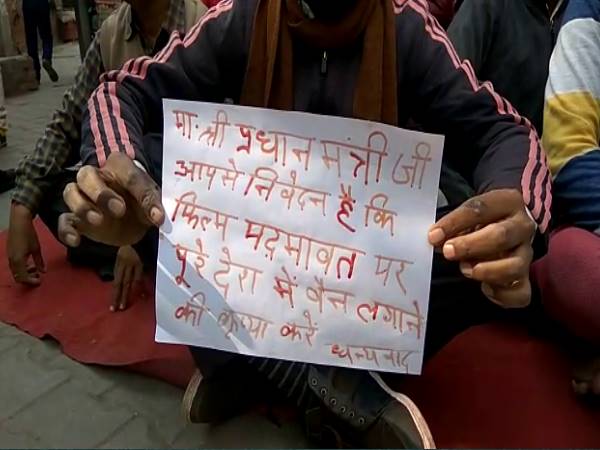 मा. श्री प्रधान मंत्री जी
आपसे निवेदन है कि
फिल्म पद्मावत पर
पूरे देश में बैन लगाने
की कृप्या करें धन्यवाद